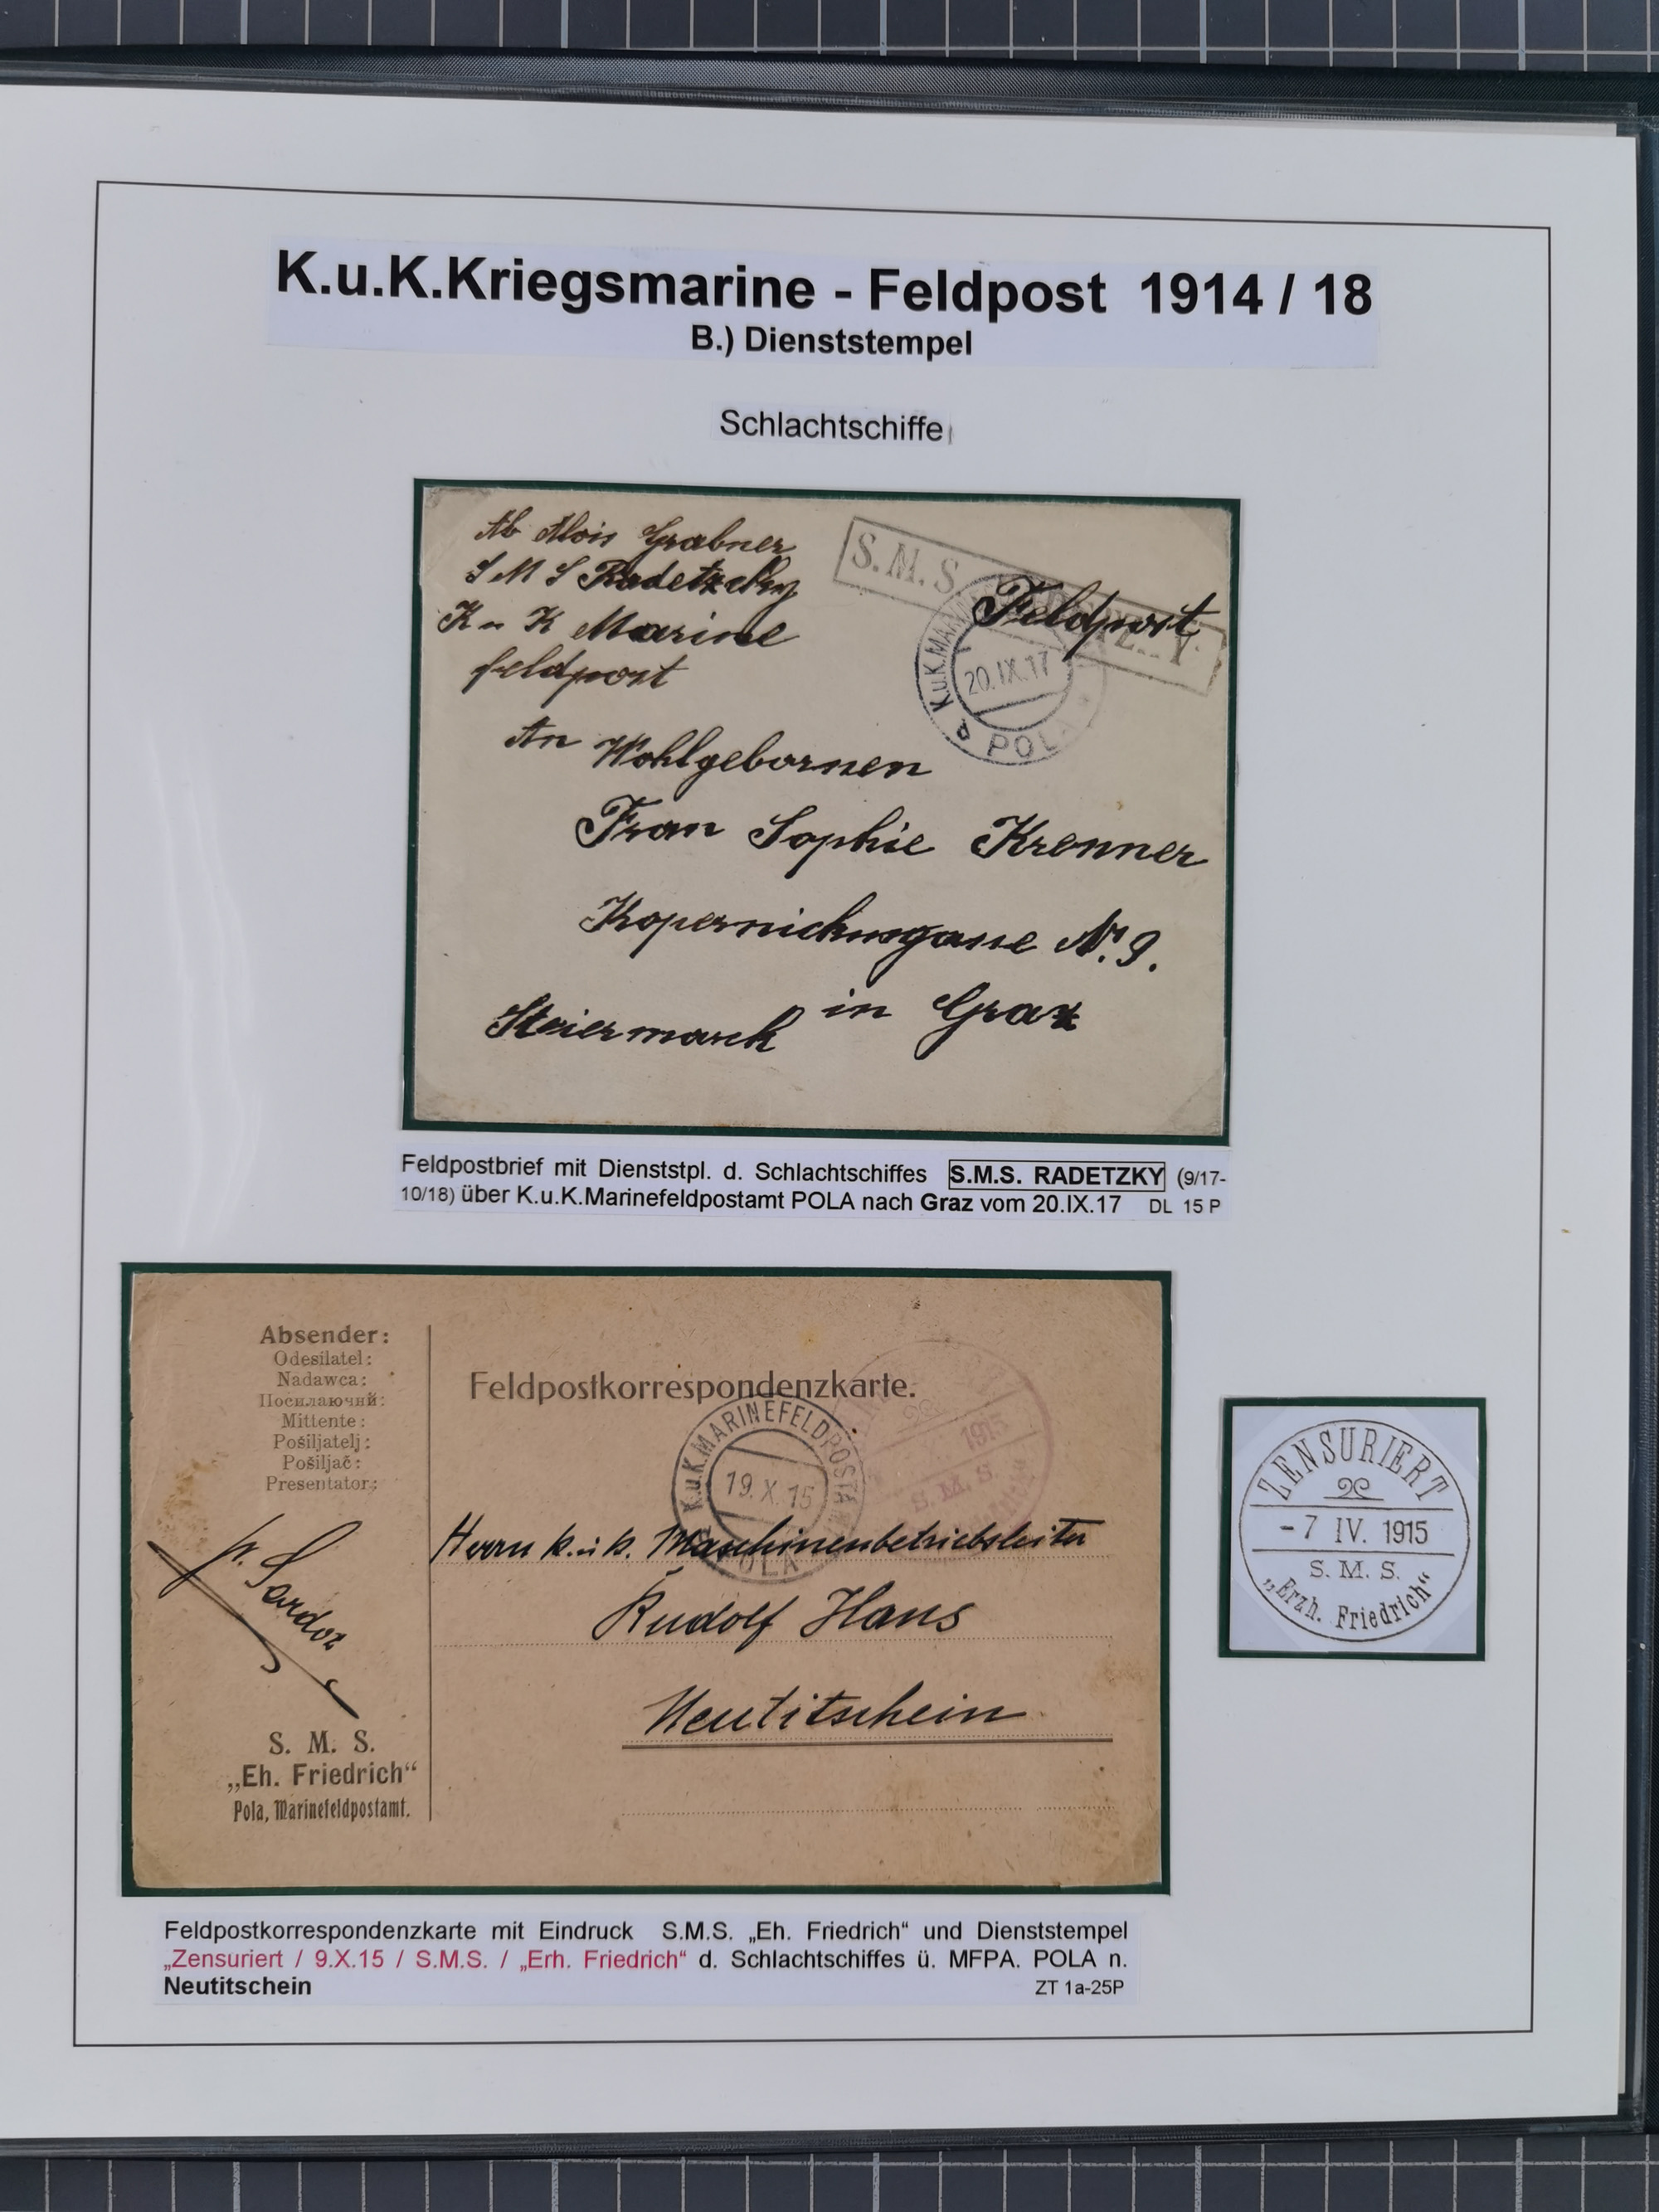 K.u.K.Kriegsmarine - Feldpost 1914 / 18
B.) Dienststempel
Schlachtschiffe
Ab Alois Grabner
S M S Radetzky
K u K Marine
feldpost
S.M.S.
Feldpost
K.u.K.MARINE
20.IX.17
POLA
An Wohlgebornen
Frau Sophie Krenner
Kopernickusgasse Nr. 9.
in Graz
Steiermark
Feldpostbrief mit Dienststpl. d. Schlachtschiffes S.M.S. RADETZKY (9/17-
10/18) über K.u.K.Marinefeldpostamt POLA nach Graz vom 20.IX.17 DL 15 P
Absender:
Odesilatel:
Nadawca:
Посилаючий:
Mittente:
Pošiljatelj:
Pošiljač:
Presentator:
Feldpostkorrespondenzkarte.
K.u.K.MARINEFELDPOSTAMT
19.X.15
POLA
1915
S. M. S.
Herrn k. u. k. Maschinenbetriebsleiter
Rudolf Hans
Neutitschein
S. M. S.
„Eh. Friedrich“
Pola, Marinefeldpostamt.
ZENSURIERT
- 7 IV. 1915
S. M. S.
„Erzh. Friedrich“
Feldpostkorrespondenzkarte mit Eindruck S.M.S. „Eh. Friedrich“ und Dienststempel
„Zensuriert / 9.X.15 / S.M.S. / „Erh. Friedrich“ d. Schlachtschiffes ü. MFPA. POLA n.
Neutitschein ZT 1a-25P